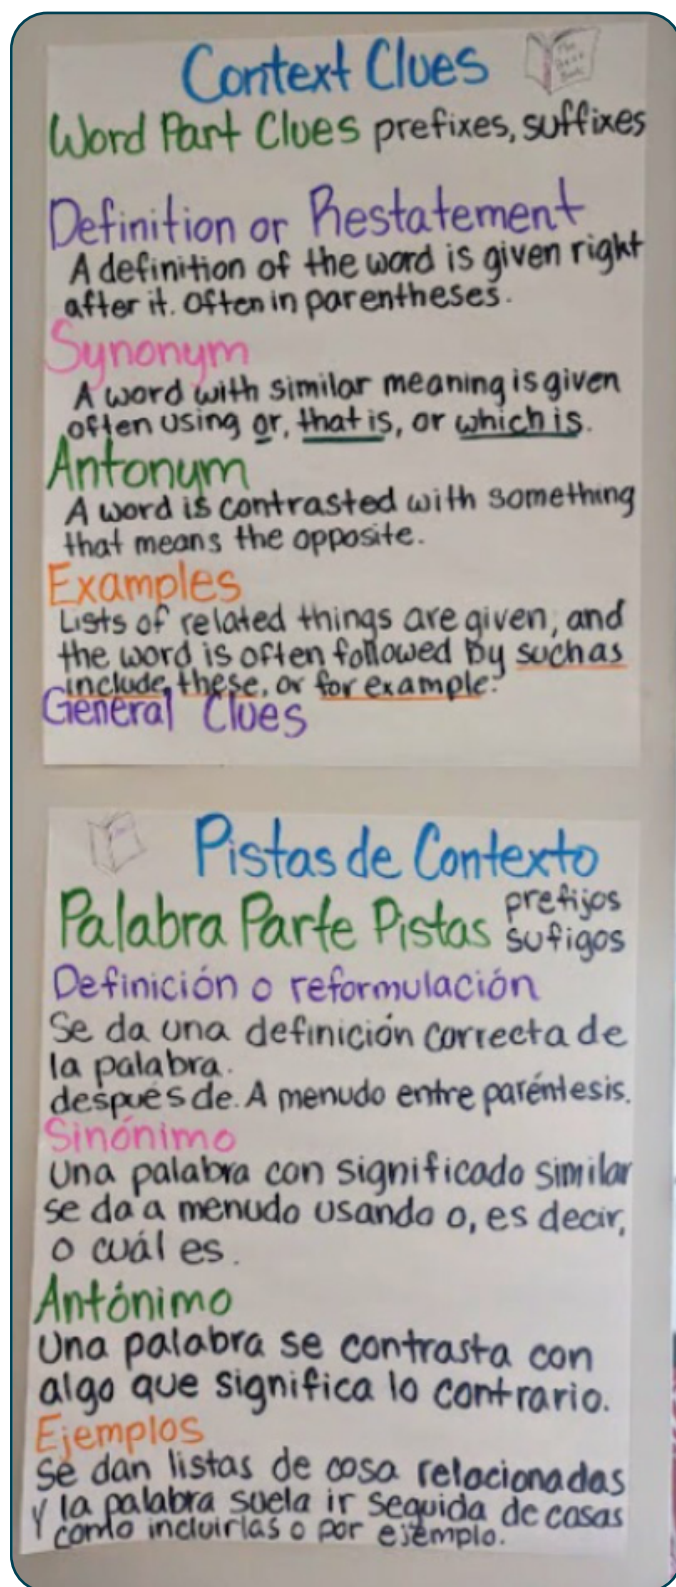 Context Clues
The
Best
Book
Word Part Clues prefixes, suffixes
Definition or Restatement
A definition of the word is given right
after it. Often in parentheses.
Synonym
A word with similar meaning is given
often using or, that is, or which is.
Antonym
A word is contrasted with something
that means the opposite.
Examples
Lists of related things are given, and
the word is often followed by such as
include, these, or for example.
General Clues
Pistas de Contexto
Palabra Parte Pistas prefijos
sufigos
Definición o reformulación
Se da una definición correcta de
la palabra.
después de. A menudo entre paréntesis.
Sinónimo
Una palabra con significado similar
se da a menudo usando o, es decir,
o cuál es.
Antónimo
Una palabra se contrasta con
algo que significa lo contrario.
Ejemplos
Se dan listas de cosa relacionadas
Y la palabra suela ir seguida de casas
como incluirlas o por ejemplo.